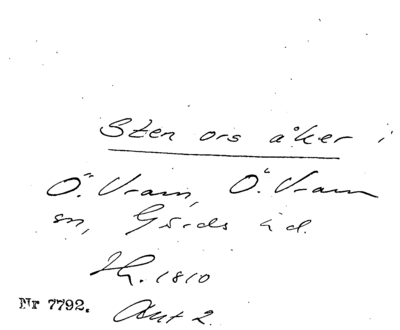 Sten ors åker i
Ö. Vram, Ö. Vram
sn, Gärds hd.
Lh. 1810
Nr 7792. Akt 2.